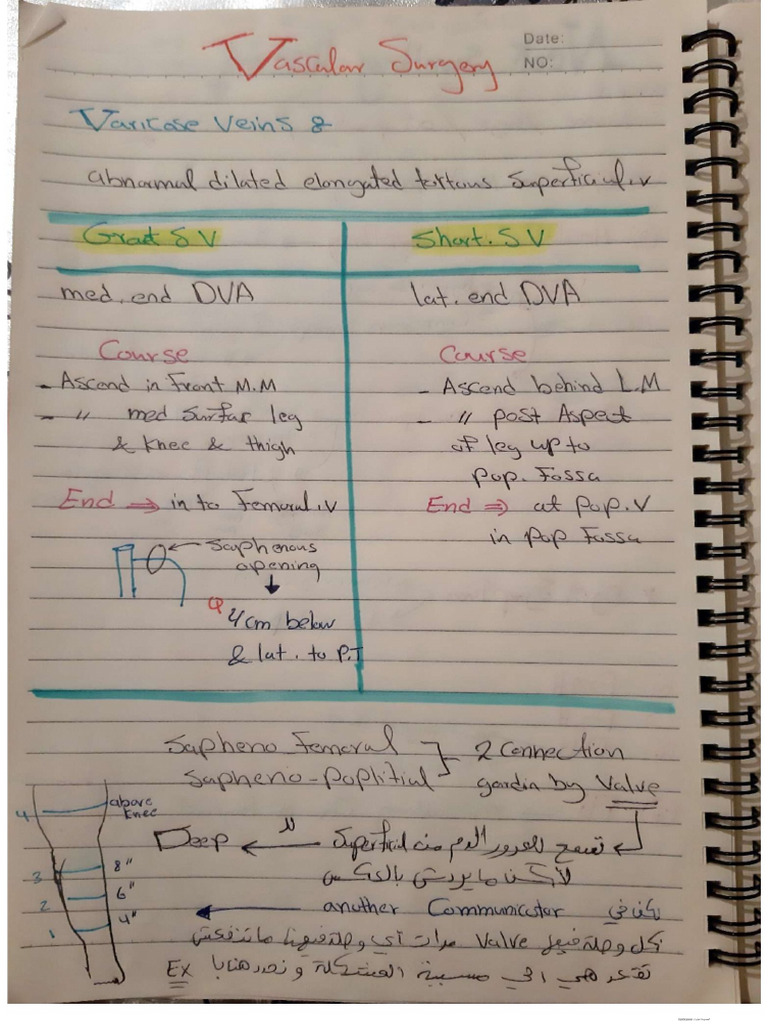 Date:
NO:
Vascular Surgery
Varicose Veins &
abnormal dilated elongated tortous Superficial.v
Great S V
Short. S V
med. end DVA
lat. end DVA
Course
- Ascend in Front M.M
- " med Surfac leg
& knee & thigh
End ⇒ in to Femoral.V
Saphenous
opening
Q 4cm below
& lat. to P.T
Course
- Ascend behind L.M
- " post Aspect
of leg up to
pop. Fossa
End ⇒ at pop.V
in pop Fossa
Sapheno_Femoral
Sapheno-Poplitial
2 Connection
by Valve
تسمح للمرور الدم من Superficial لل Deep
بالعكس
في another Communicator
كل وصلة فيها Valve
هي الي مسببة المشكلة Ex
above
knee
4
3 8"
2 6"
1 4"